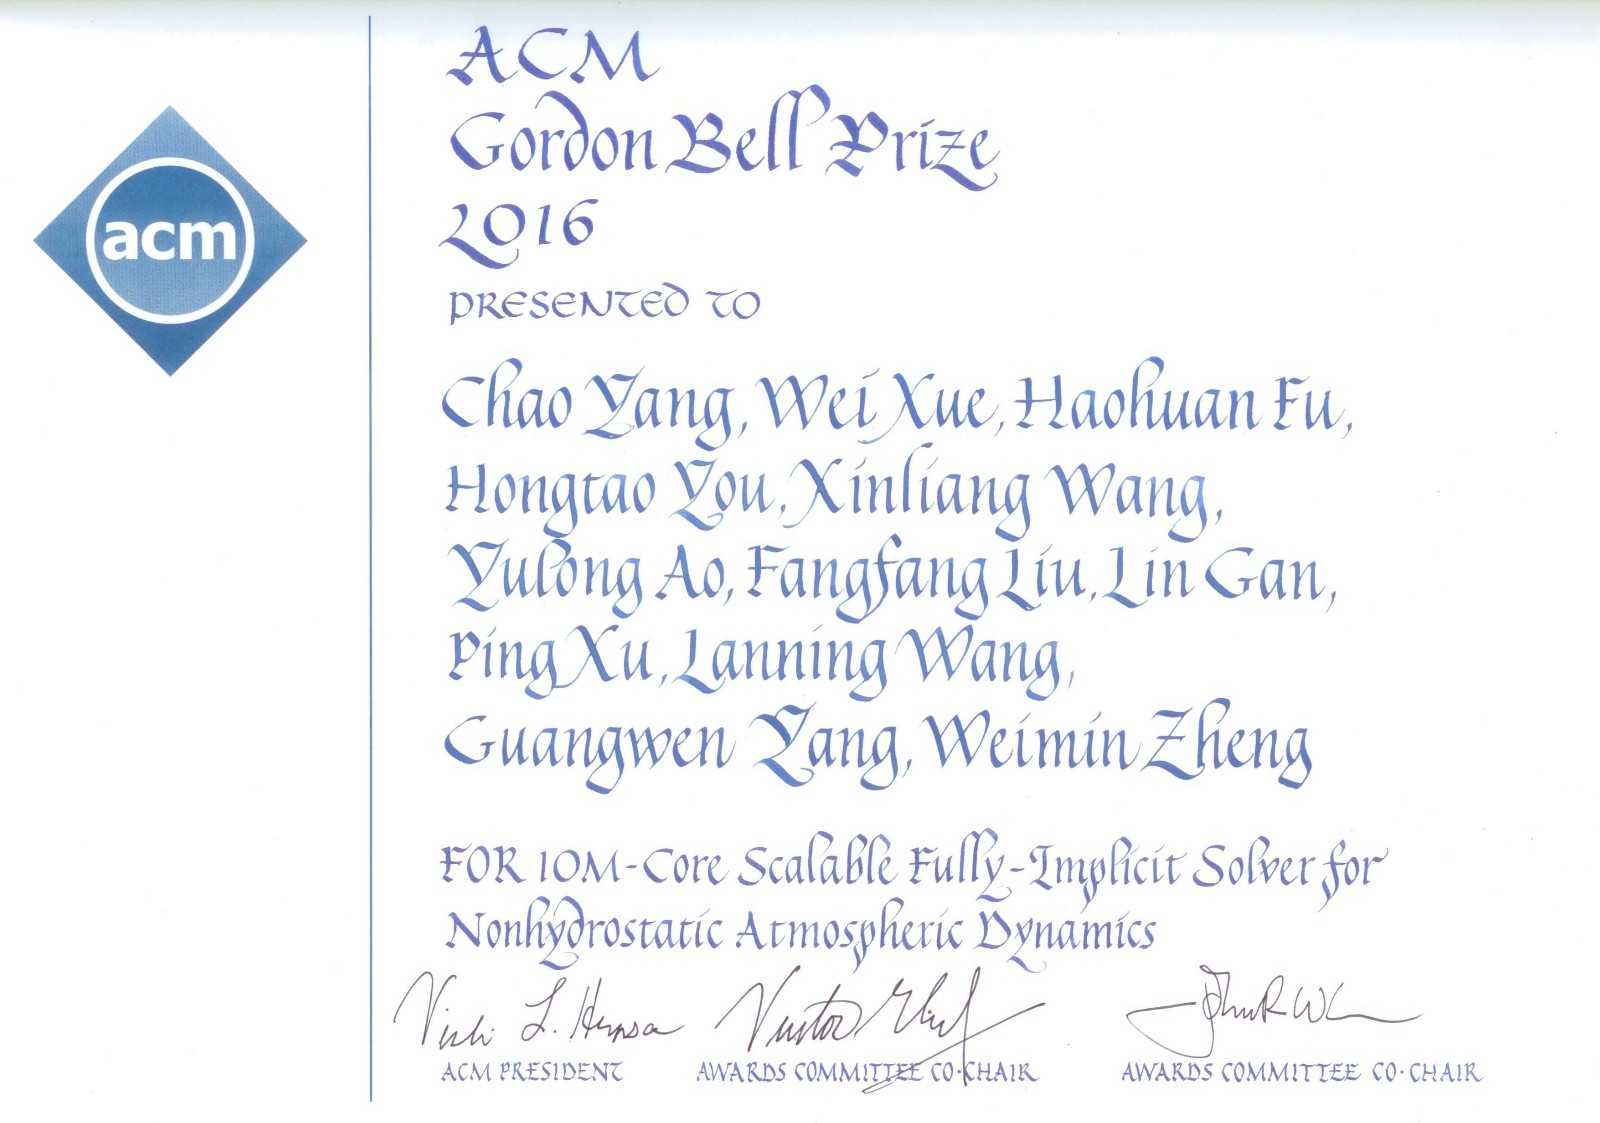 acm
ACM
Gordon Bell Prize
2016
PRESENTED TO
Chao Yang, Wei Xue, Haohuan Fu,
Hongtao You, Xinliang Wang,
Yulong Ao, Fangfang Liu, Lin Gan,
Ping Xu, Lanning Wang,
Guangwen Yang, Weimin Zheng
FOR 10M-Core Scalable Fully-Implicit Solver for
Nonhydrostatic Atmospheric Dynamics
Vicki L. Hanson
ACM PRESIDENT AWARDS COMMITTEE CO-CHAIR AWARDS COMMITTEE CO-CHAIR